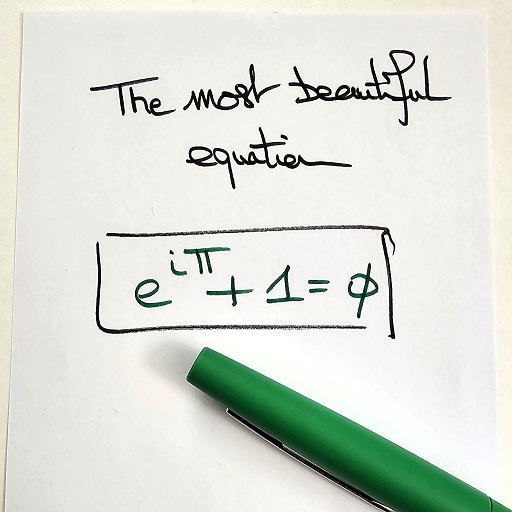 The most beautiful
equation
e^{iπ} + 1 = φ